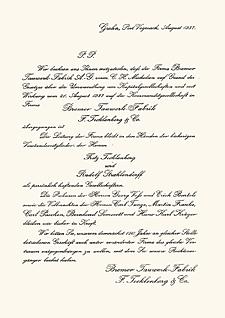 Grohn, Post Vegesack, August 1937.
P. P.
Wir beehren uns Ihnen mitzuteilen, daß die Firma Bremer
Tauwerk-Fabrik A. G. vorm. C. H. Michelsen auf Grund des
Gesetzes über die Umwandlung von Kapitalgesellschaften und mit
Wirkung vom 1937 auf die Kommanditgesellschaft in
Firma
Bremer Tauwerk-Fabrik
F. Tecklenborg & Co.
übergegangen ist.
Die Leitung der Firma bleibt in den Händen der bisherigen
Vorstandsmitglieder, der Herren
Fritz Tecklenborg
und
Rudolf Strahlendorff
als persönlich haftenden Gesellschaftern.
Die Prokuren der Herren Georg Voß und Erich
sowie die Vollmachten der Herren Carl Martin
Carl Bernhard und Hans Karl
bleiben wie bisher in Kraft.
Wir bitten Sie, unserem demnächst 150 Jahre an gleicher Stelle
betriebenen Geschäft auch unter veränderter Firma das gleiche Ver-
trauen entgegenbringen zu wollen, mit dem Sie unsere Rechtsvor-
gänger beehrt haben.
Bremer Tauwerk-Fabrik
F. Tecklenborg & Co.